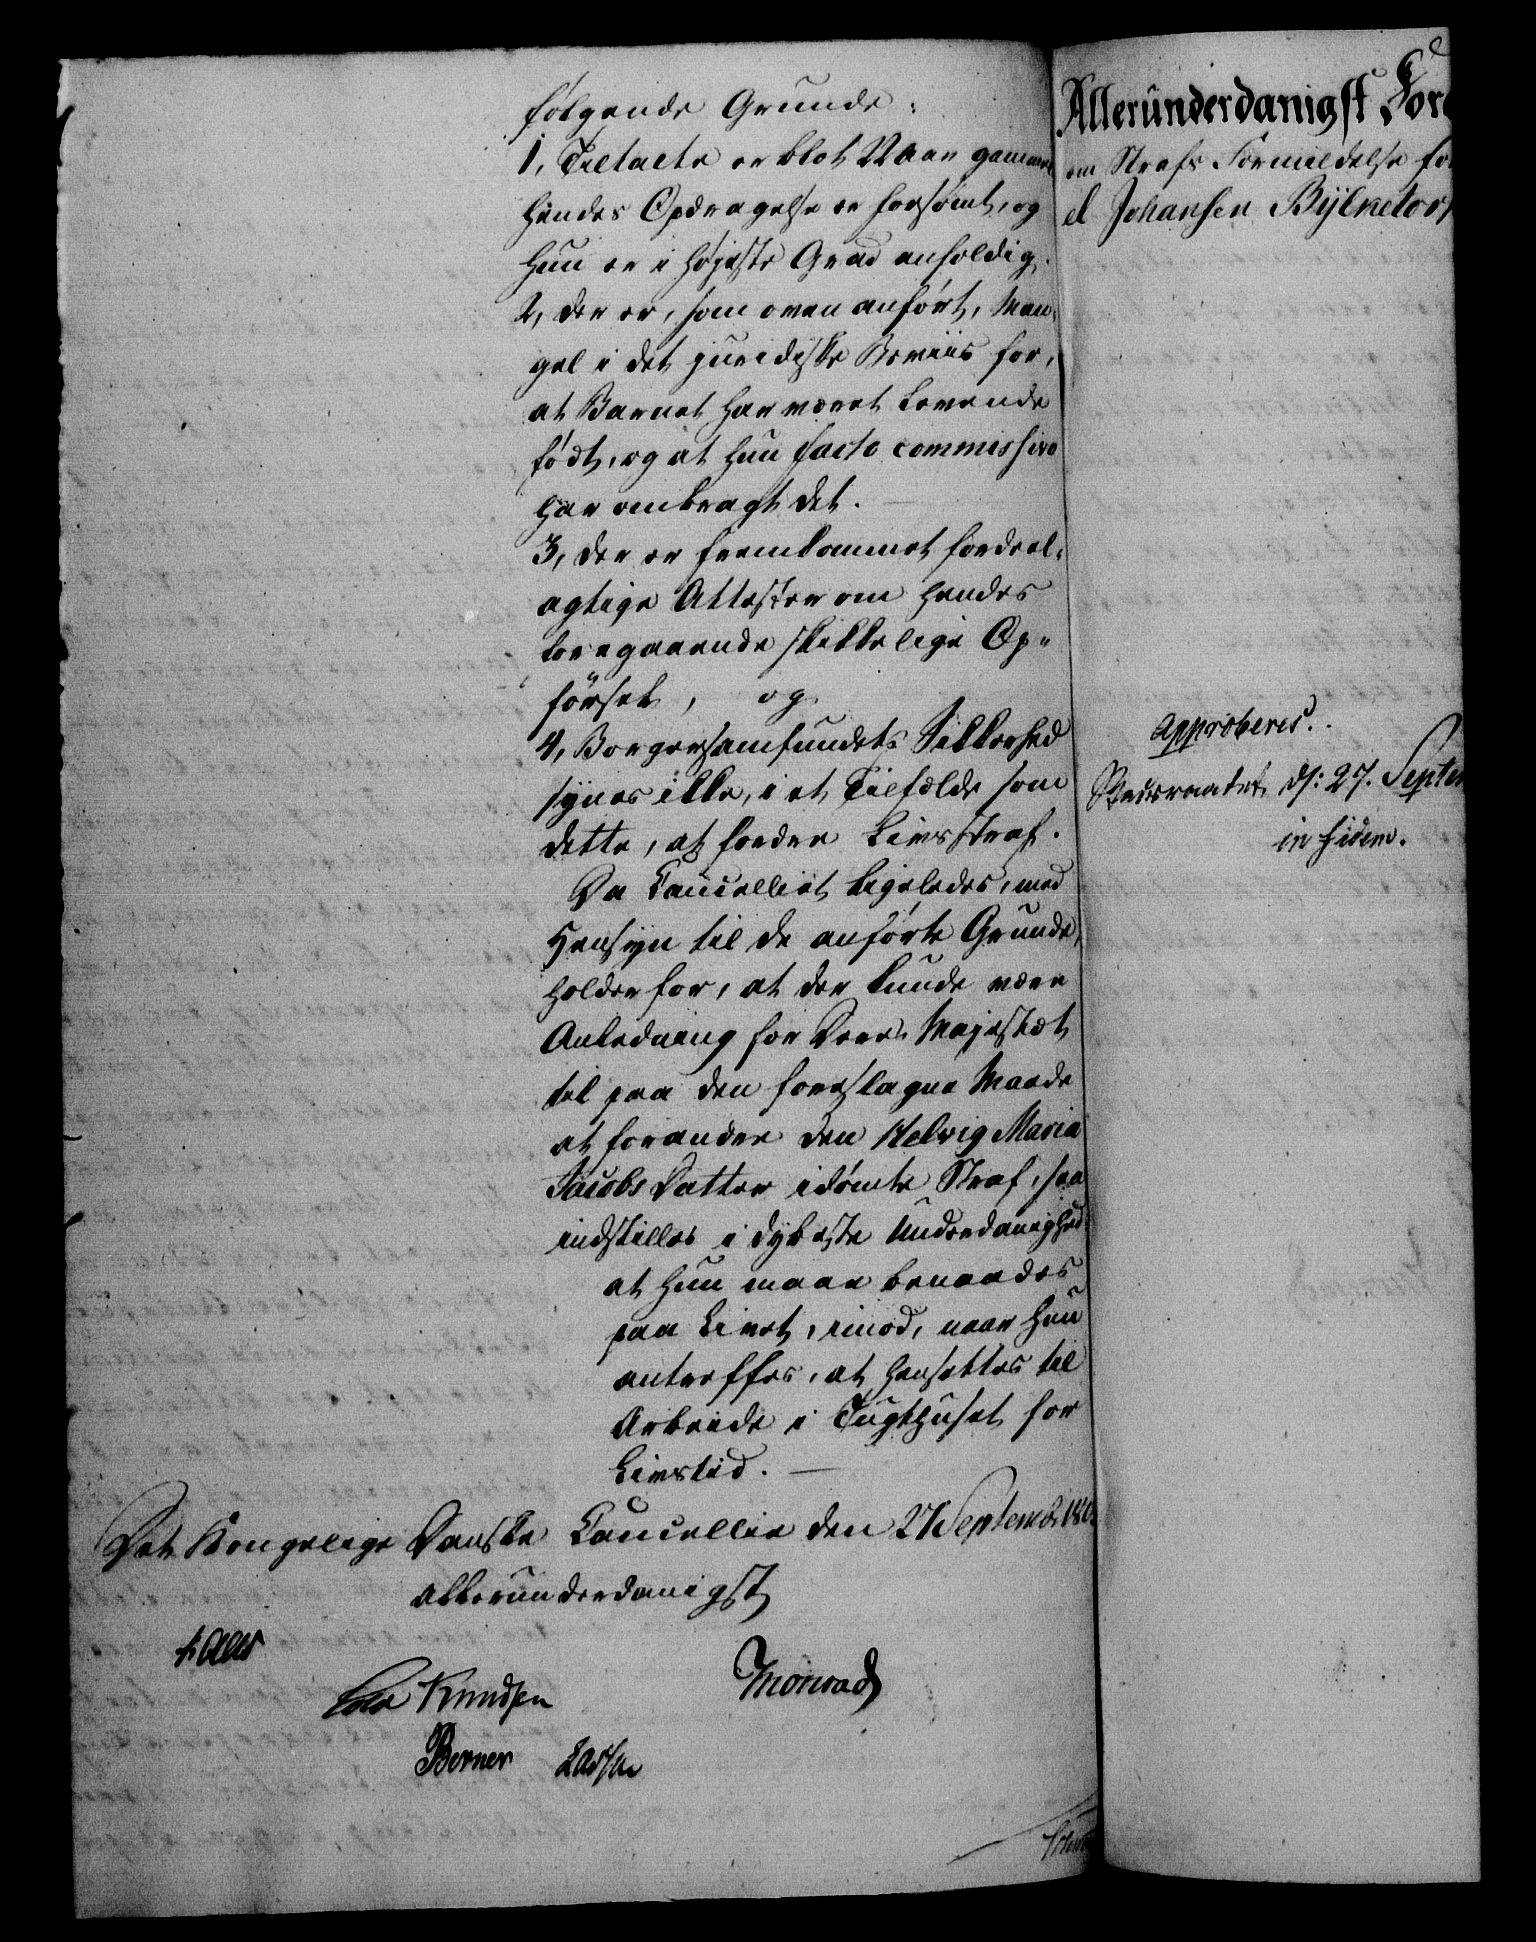 følgende Grunde:
1, Tiltalte er blot 22 Aar gammel
hendes Opdragelse er forsømt, og
hun er i højeste Grad enfoldig.
2, der er, som oven anført, Man-
gel i det juridiske Beviis for,
at Barnet har været levende
født, og at hun facto commissivo
har ombragt det.
3, der er fremkommet fordeel-
agtige Attester om hendes
foregaaende skikkelige Op-
førsel, og
4, Borgersamfundets Sikkerhed
synes ikke, i et Tilfælde som
dette, at fordre Livsstraf.
Da Cancelliet ligeledes, med
Hensyn til de anførte Grunde,
holder for, at der kunde være
Anledning for Deres Majestæt
til paa den foreslagne Maade
at forandre den Helvig Maria
Jacobs Datter idømte Straf, saa
indstilles i dybeste Underdanighed
at hun maae benaades
paa Livet, imod, naar hun
antreffes, at hensættes til
Arbeide i Tugthuset for
Livstid.
Det Kongelige Danske Cancellie den 27 Septembr 180
allerunderdanigst
Kaas
Knudsen
Monrad
Berner Lassen
Allerunderdanigst For
om Strafs Formildelse for
el Johansen Bylketor
Approberes.
Stadsraadet d: 27. Septem
in fidem.